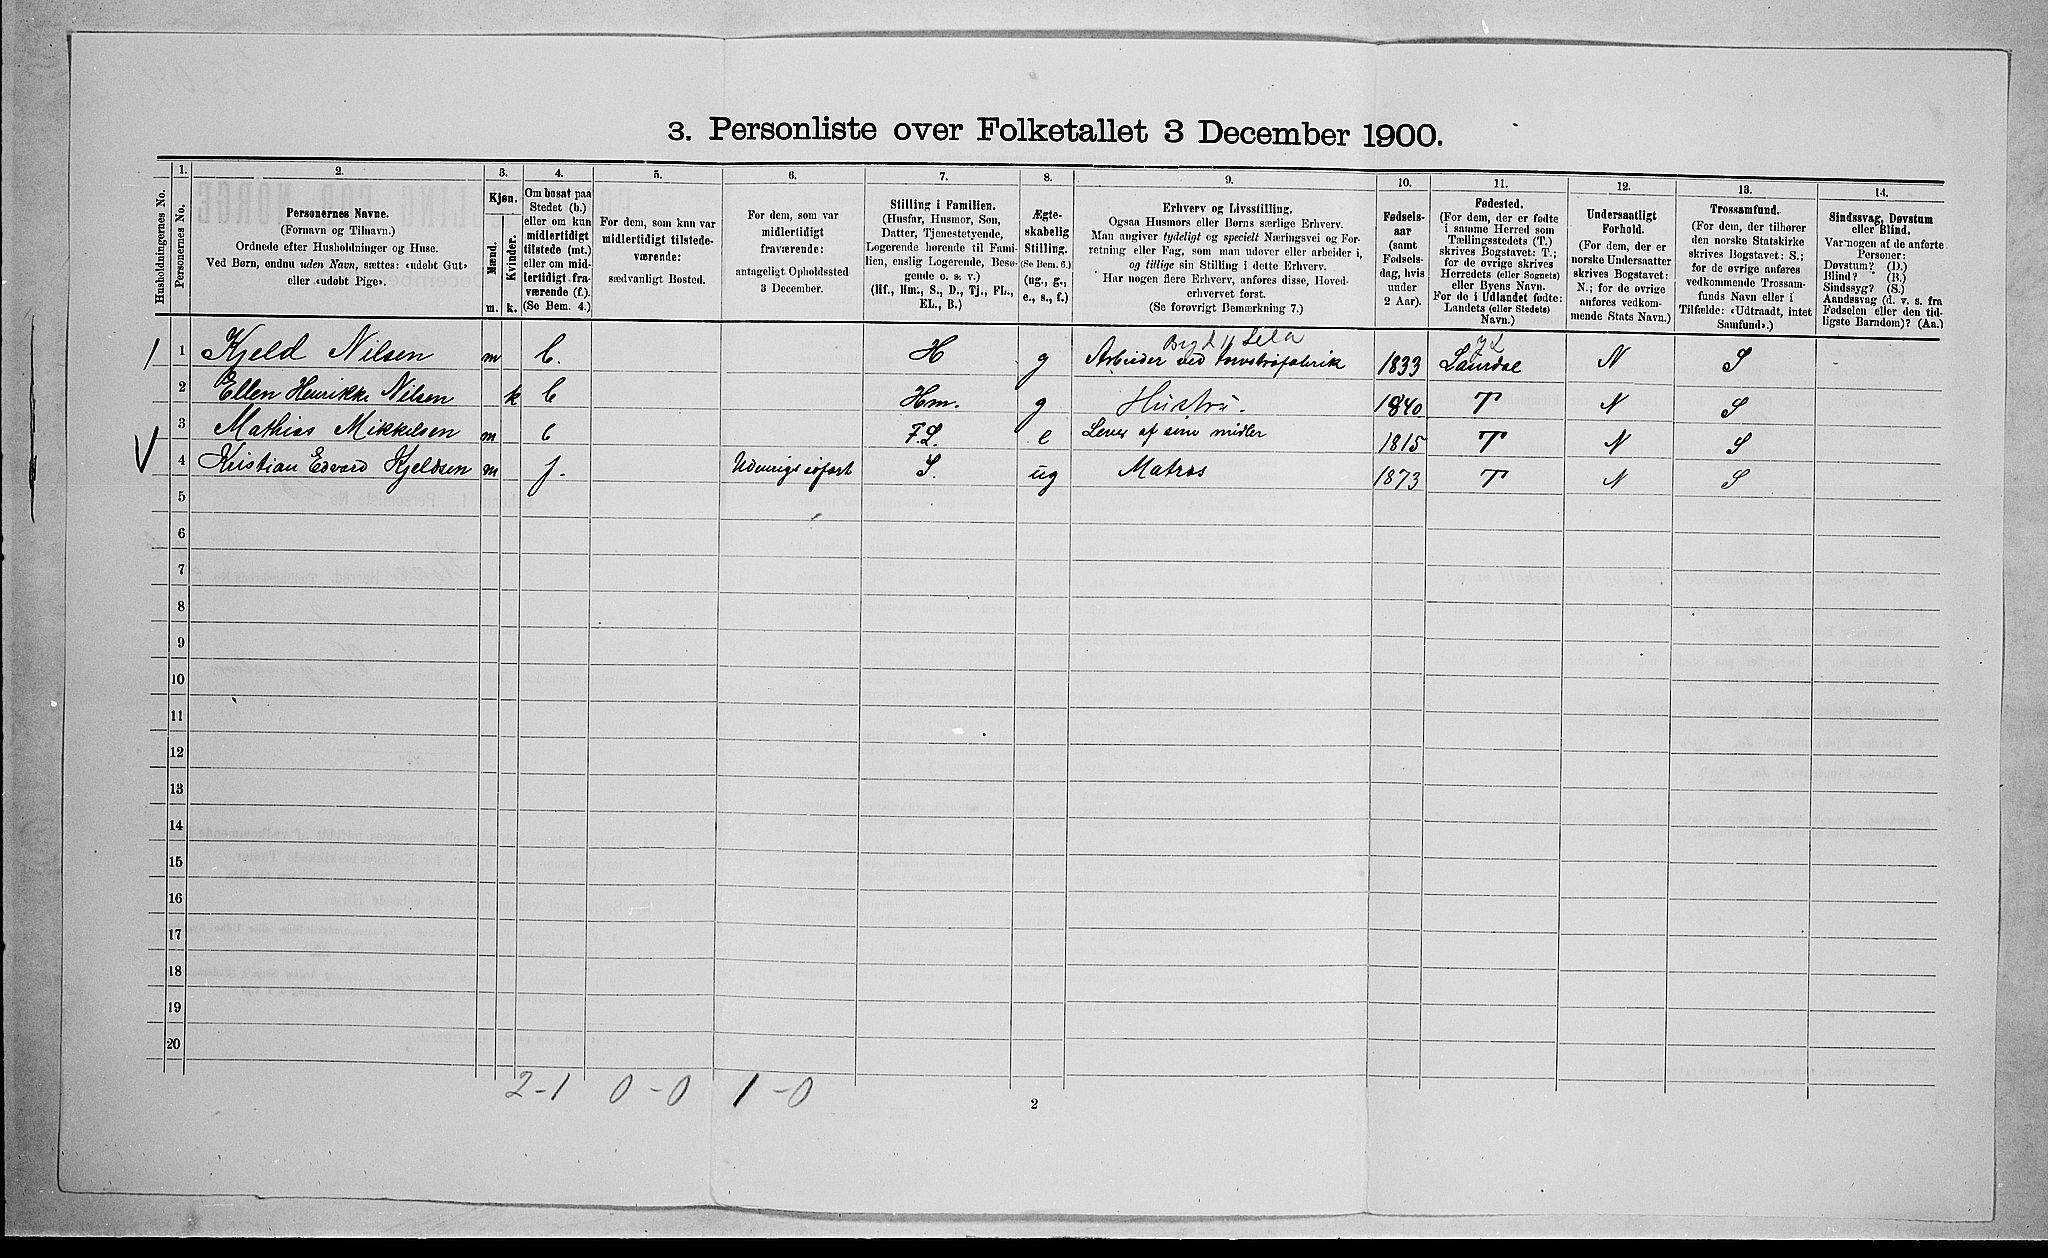 3. Personliste over Folketallet 3 December 1900.
Husholdningernes No.
1.
Personernes No.
2.
Personernes Navne.
(Fornavn og Tilnavn.)
Ordnede efter Husholdninger og Huse.
Ved Børn, endnu uden Navn, sættes: «udøbt Gut»
eller «udøbt Pige».
3.
Kjøn.
Mænd.
Kvinder.
m. k.
4.
Om bosat paa
Stedet (b.)
eller om kun
midlertidigt
tilstede (mt.)
eller om mid-
lertidigt fra-
værende (f.).
(Se Bem. 4.)
5.
For dem, som kun var
midlertidigt tilstede-
værende:
sædvanligt Bosted.
6.
For dem, som var
midlertidigt
fraværende:
antageligt Opholdssted
3 December.
7.
Stilling i Familien.
(Husfar, Husmor, Søn,
Datter, Tjenestetyende,
Logerende hørende til Fami-
lien, enslig Logerende, Besø-
gende o. s. v.)
(Hf., Hm., S., D., Tj., FL.,
EL., B.)
8.
Ægte-
skabelig
Stilling.
(Se Bem. 6.)
(ug., g.,
e., s., f.)
9.
Erhverv og Livsstilling.
Ogsaa Husmors eller Børns særlige Erhverv.
Man angiver tydeligt og specielt Næringsvei og For-
retning eller Fag, som man udøver eller arbeider i,
og tillige sin Stilling i dette Erhverv.
Har nogen flere Erhverv, anføres disse, Hoved-
erhvervet først.
(Se forøvrigt Bemærkning 7.)
10.
Fødsels-
aar
(samt
Fødsels-
dag, hvis
under
2 Aar).
11.
Fødested.
(For dem, der er fødte
i samme Herred som
Tællingsstedets (T.)
skrives Bogstavet: T.;
for de øvrige skrives
Herredets (eller Sognets)
eller Byens Navn.
For de i Udlandet fødte:
Landets (eller Stedets)
Navn.)
12.
Undersaatligt
Forhold.
(For dem, der er
norske Undersaatter
skrives Bogstavet:
N.; for de øvrige
anføres vedkom-
mende Stats Navn.)
13.
Trossamfund.
(For dem, der tilhører
den norske Statskirke
skrives Bogstavet: S.;
for de øvrige anføres
vedkommende Trossam-
funds Navn eller i
Tilfælde: «Udtraadt, intet
Samfund».)
14.
Sindssvag, Døvstum
eller Blind.
Var nogen af de anførte
Personer:
Døvstum? (D.)
Blind? (B.)
Sindssyg? (S.)
Aandssvag (d. v. s. fra
Fødselen eller den tid-
ligste Barndom)? (Aa.)
1 1 Kjeld Nilsen m b. H g Arbeider ved torvstrøfabrik 1833 Laurdal N S
2 Ellen Henrikke Nilsen k b Hm. g Hustru. 1840 T N S
3 Mathias Mikkelsen m b F.L. e Lever af sine midler 1815 T N S
4 Kristian Edvard Kjeldsen m f. Udenrigs søfart S. ug Matros 1873 T N S
5
6
7
8
9
10
11
12
13
14
15
16
17
18
19
20
2-1 0-0 1-0
2